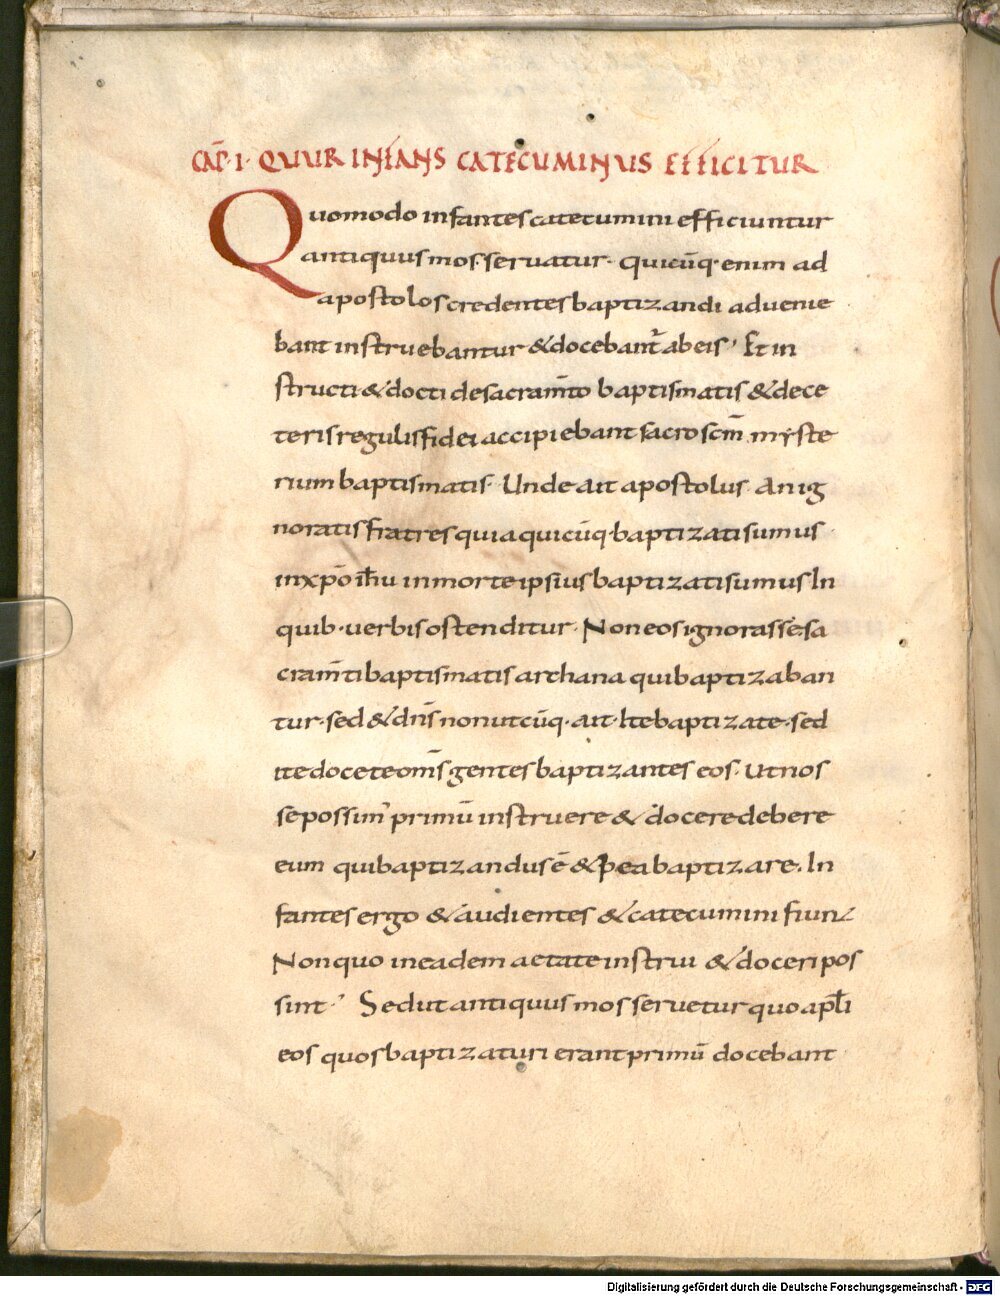 CAP̄·I· QUUR INFANS CATECUMINUS EFFICITUR
Quomodo infantes catecumini efficiuntur
antiquus mos seruatur· quicūq· enim ad
apostolos credentes baptizandi aduenie
bant instruebantur & docebant̄ ab eis· Et in
structi & docti de sacram̄to baptismatis & de ce
teris regulis fidei accipiebant sacro scm̄ myste
rium baptismatis· Unde ait apostolus· An ig
noratis fratres quia quicūq· baptizati sumus
in xp̄o ih̄u in morte ipsius baptizati sumus In
quib· uerbis ostenditur· Non eos ignorasse sa
cram̄ti baptismatis archana qui baptizaban
tur· sed & dn̄s non utcūq· ait· Ite baptizate· sed
ite docete om̄s gentes baptizantes eos· Ut nos
se possim' primū instruere & docere debere
eum qui baptizandus ē & p̄ea baptizare· In
fantes ergo & audientes & catecumini fiunt
Non quo in eadem aetate instrui & doceri pos
sint·' Sed ut antiquus mos seruetur quo apl̄i
eos quos baptizaturi erant primū docebant
Digitalisierung gefördert durch die Deutsche Forschungsgemeinschaft - DFG